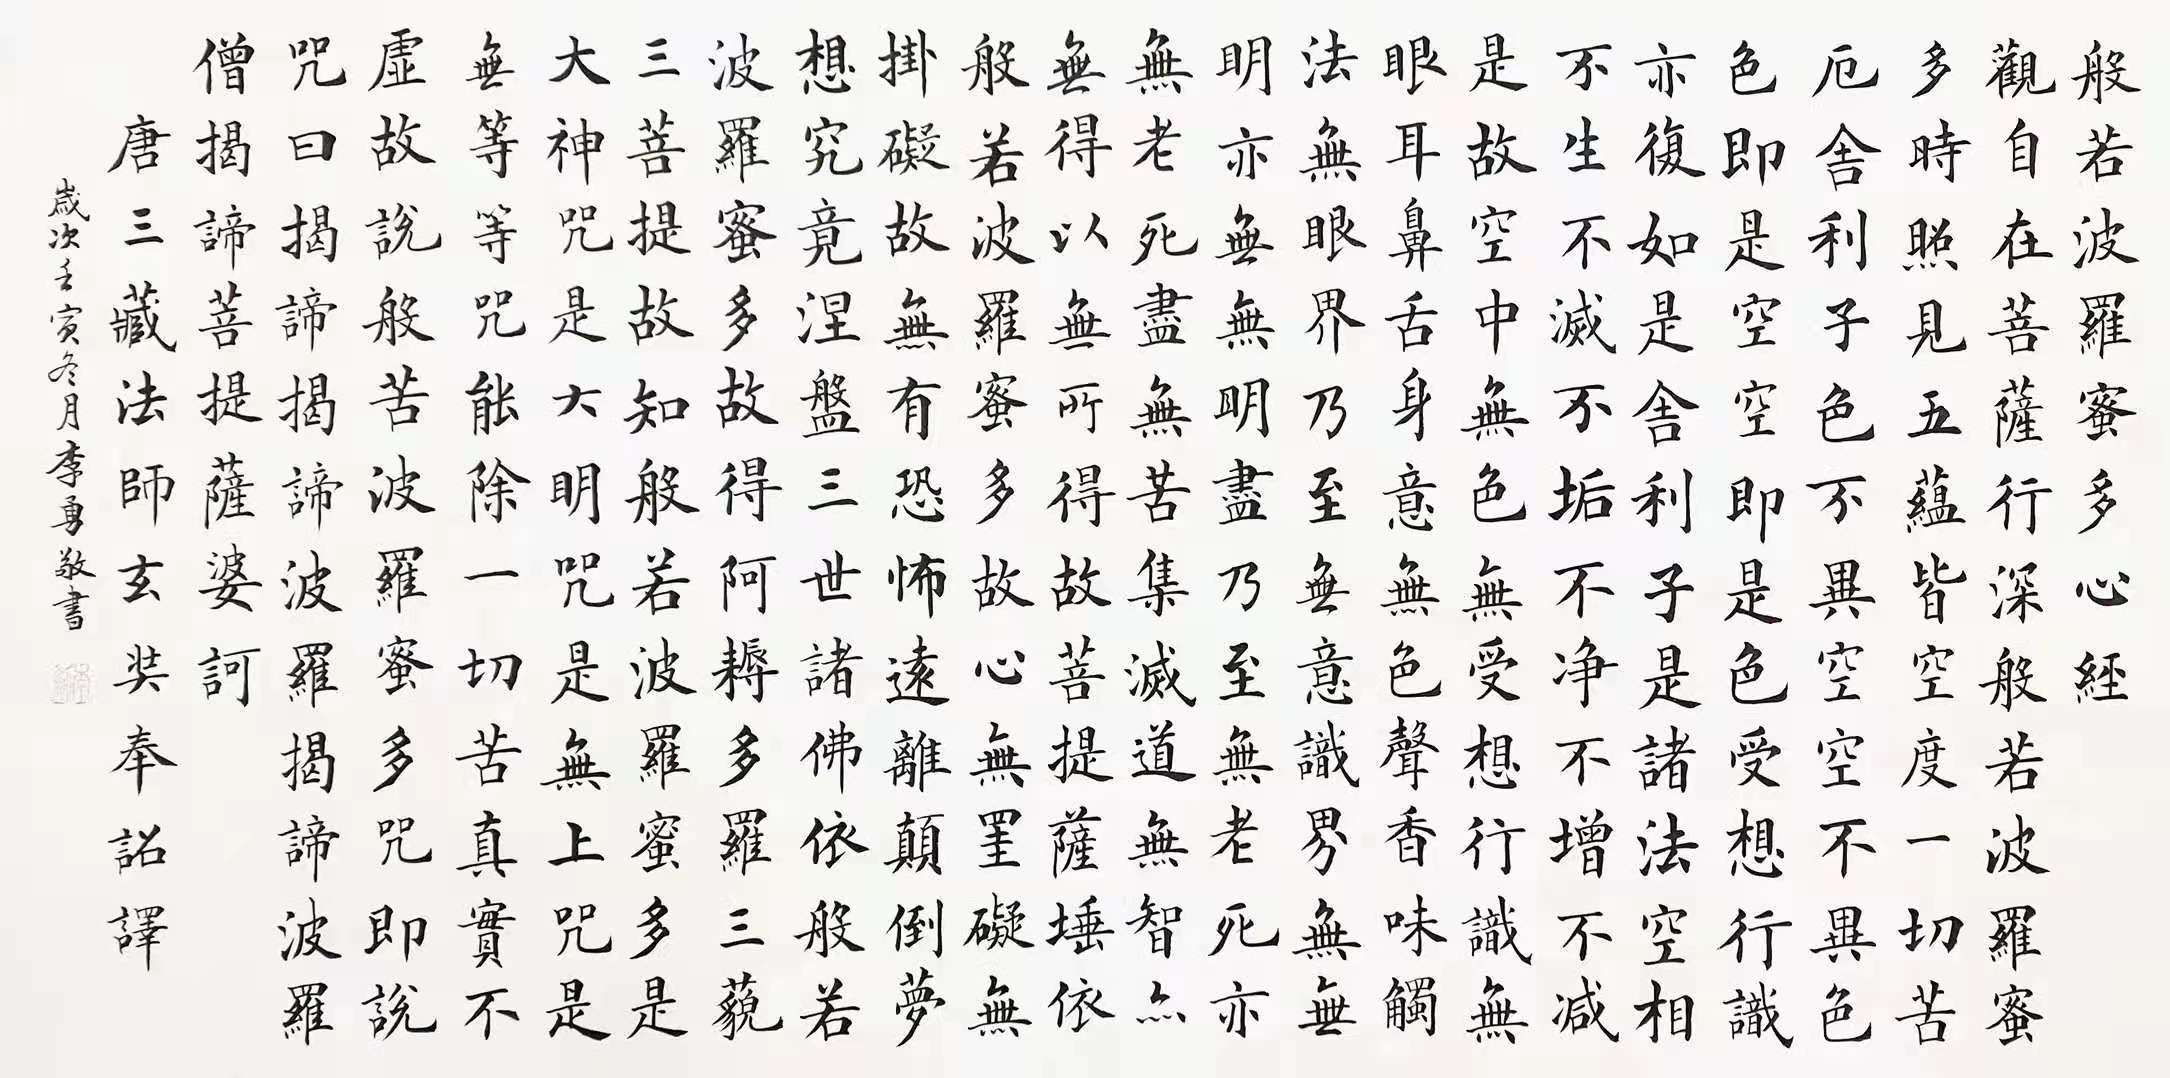 般若波羅蜜多心經
觀自在菩薩行深般若波羅蜜
多時照見五蘊皆空度一切苦
厄舍利子色不異空空不異色
色即是空空即是色受想行識
亦復如是舍利子是諸法空相
不生不滅不垢不净不增不減
是故空中無色無受想行識無
眼耳鼻舌身意無色聲香味觸
法無眼界乃至無意識界無無
明亦無無明盡乃至無老死亦
無老死盡無苦集滅道無智亦
無得以無所得故菩提薩埵依
般若波羅蜜多故心無罣礙無
掛礙故無有恐怖遠離顛倒夢
想究竟涅盤三世諸佛依般若
波羅蜜多故得阿耨多羅三藐
三菩提故知般若波羅蜜多是
大神咒是大明咒是無上咒是
無等等咒能除一切苦真實不
虛故說般苦波羅蜜多咒即說
咒曰揭諦揭諦波羅揭諦波羅
僧揭諦菩提薩婆訶
唐三藏法師玄奘奉詔譯
歲次壬寅冬月李勇敬書